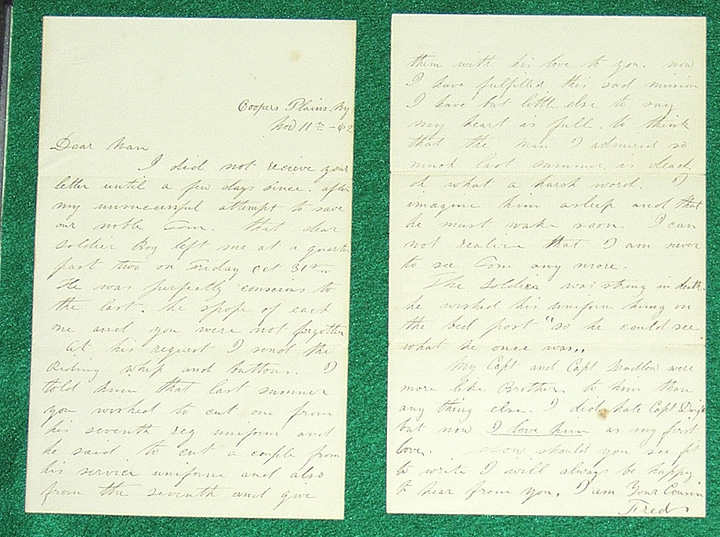 Coopers Plains. Ny
Nov 11th - 62
Dear Nan
I did not recieve your
letter until a few days since. after
my unsuccessful attempt to save
our noble Tom. that dear
soldier Boy left me at a quarter
past two on Friday Oct 31st.
He was perfectly conscious to
the last. he spoke of each
one and you were not forgotten
at his request I send the
Riding whip and buttons. I
told him that last summer
you wished to cut one from
his seventh reg uniform and
he said. to cut a couple from
his service uniform and also
from the seventh and give
them with his love to you. now
I have fulfilled this sad mission
I have but little else to say
my heart is full. to think
that the man I admired so
much last summer is dead.
oh what a harsh word. I
imagine him asleep and that
he must wake soon. I can
not realize that I am never
to see Tom any more.
The soldier was strong in death.
he wished his uniform hung on
the bed post "so he could see
what he once was"
My Capt and Capt were
more like Brothers to him than
any thing else. I did hate Capt
but now I love him as my first
love. now should you see fit
to write I will always be happy
to hear from you. I am Your Cousin
Fred